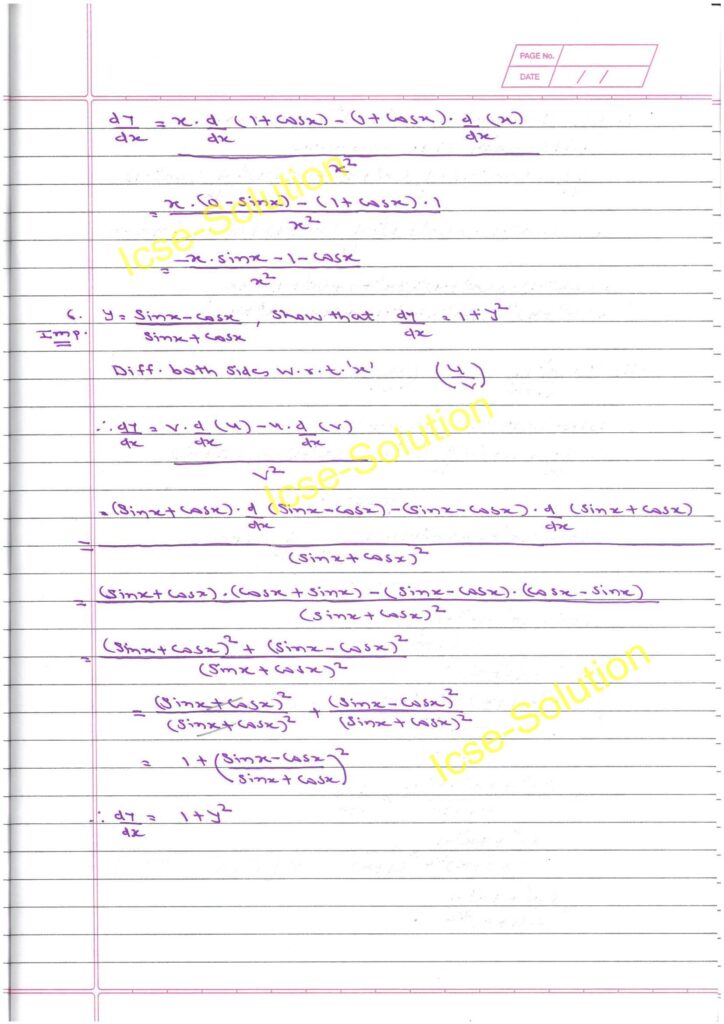 PAGE No.
DATE / /
dy/dx = x. d/dx (1+cosx) - (1+cosx). d/dx (x)
x²
= x.(0-sinx) - (1+cosx).1 / x²
= -x.sinx-1-cosx / x²
6. y = sinx-cosx / sinx+cosx, show that dy/dx = 1+y²
Imp.
Diff. both sides w.r.t. 'x' (u/v)
∴ dy/dx = v. d/dx (u) - u. d/dx (v)
v²
= (sinx+cosx). d/dx (sinx-cosx) - (sinx-cosx). d/dx (sinx+cosx)
(sinx+cosx)²
= (sinx+cosx).(cosx+sinx) - (sinx-cosx).(cosx-sinx)
(sinx+cosx)²
= (sinx+cosx)² + (sinx-cosx)²
(sinx+cosx)²
= (sinx+cosx)² / (sinx+cosx)² + (sinx-cosx)² / (sinx+cosx)²
= 1+ (sinx-cosx / sinx+cosx)²
∴ dy/dx = 1+y²
Icse-Solution
Icse-Solution
Icse-Solution